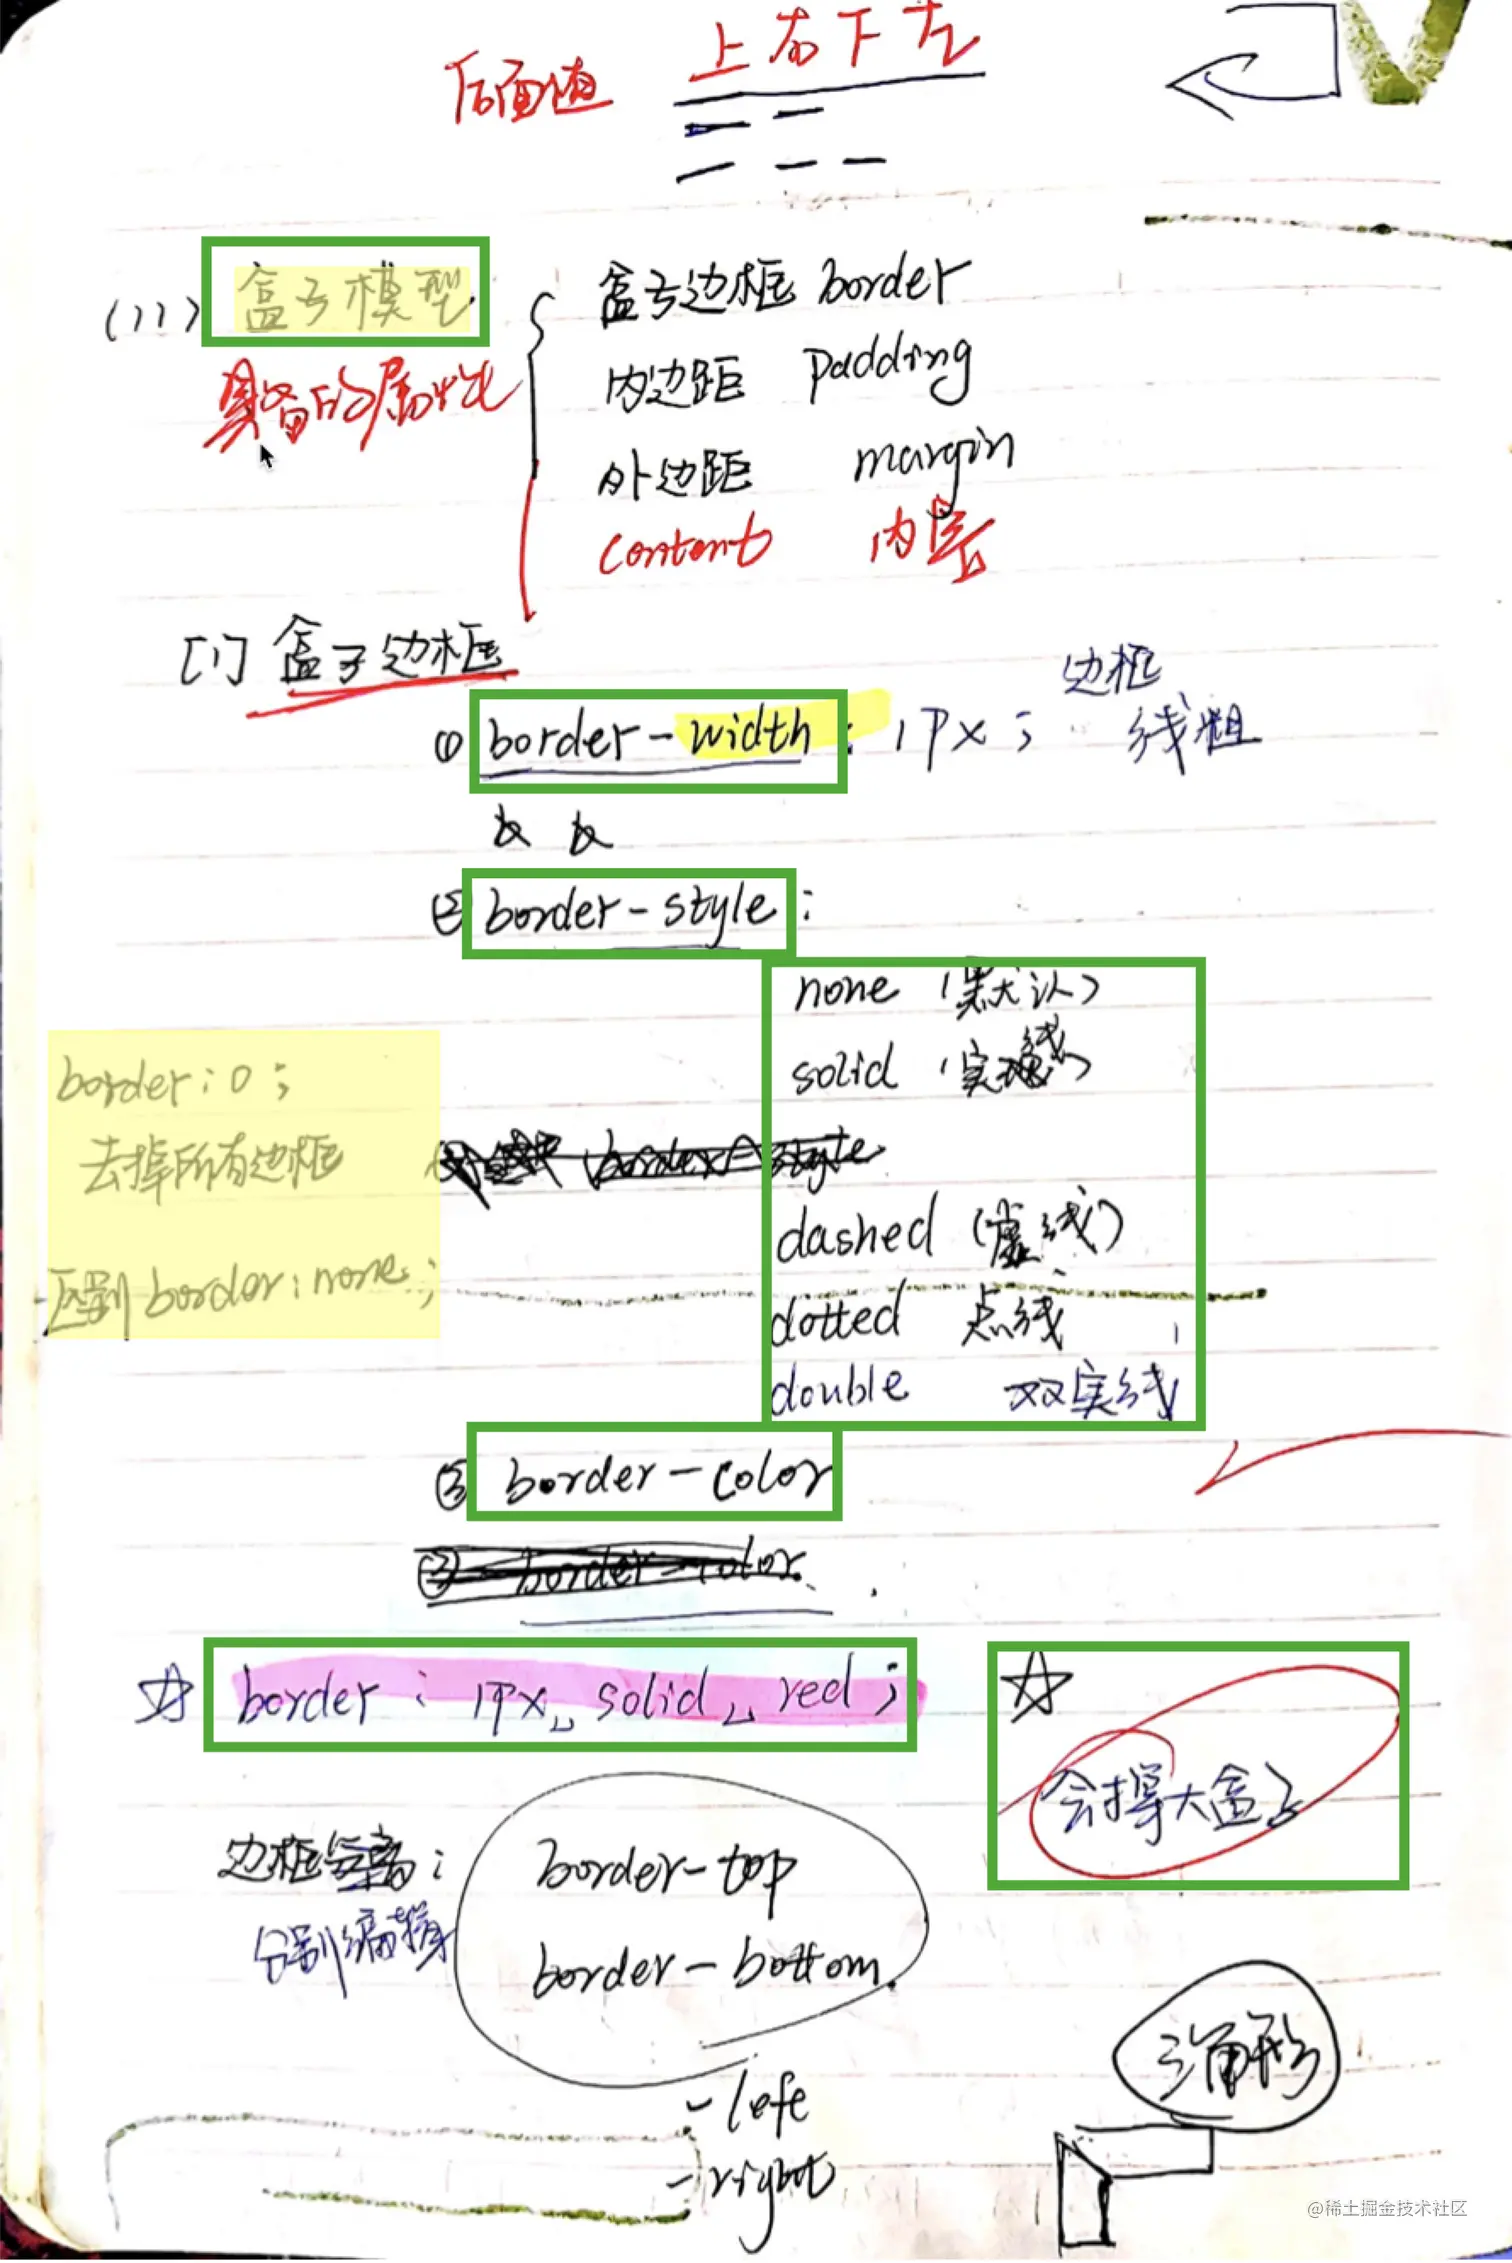 后面值 上右下左
(11) 盒子模型
具备的属性
盒子边框 border
内边距 padding
外边距 margin
content 内容
[1] 盒子边框
① border-width: 1px; 边框线粗
& &
② border-style:
none (默认)
solid (实线)
border-style
dashed (虚线)
dotted 点线
double 双实线
border:0;
去掉所有边框
区别 border:none;
③ border-color
② border-color
☆ border: 1px␣solid␣red;
☆
会撑大盒子
边框分离:
分别编辑
border-top
border-bottom
-left
-right
三角形
@稀土掘金技术社区